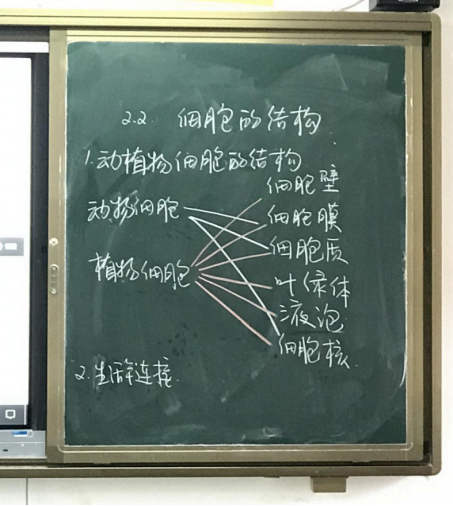 2.2 细胞的结构
1.动植物细胞的结构
细胞壁
动物细胞
细胞膜
细胞质
植物细胞
叶绿体
液泡
细胞核
2.生活链接